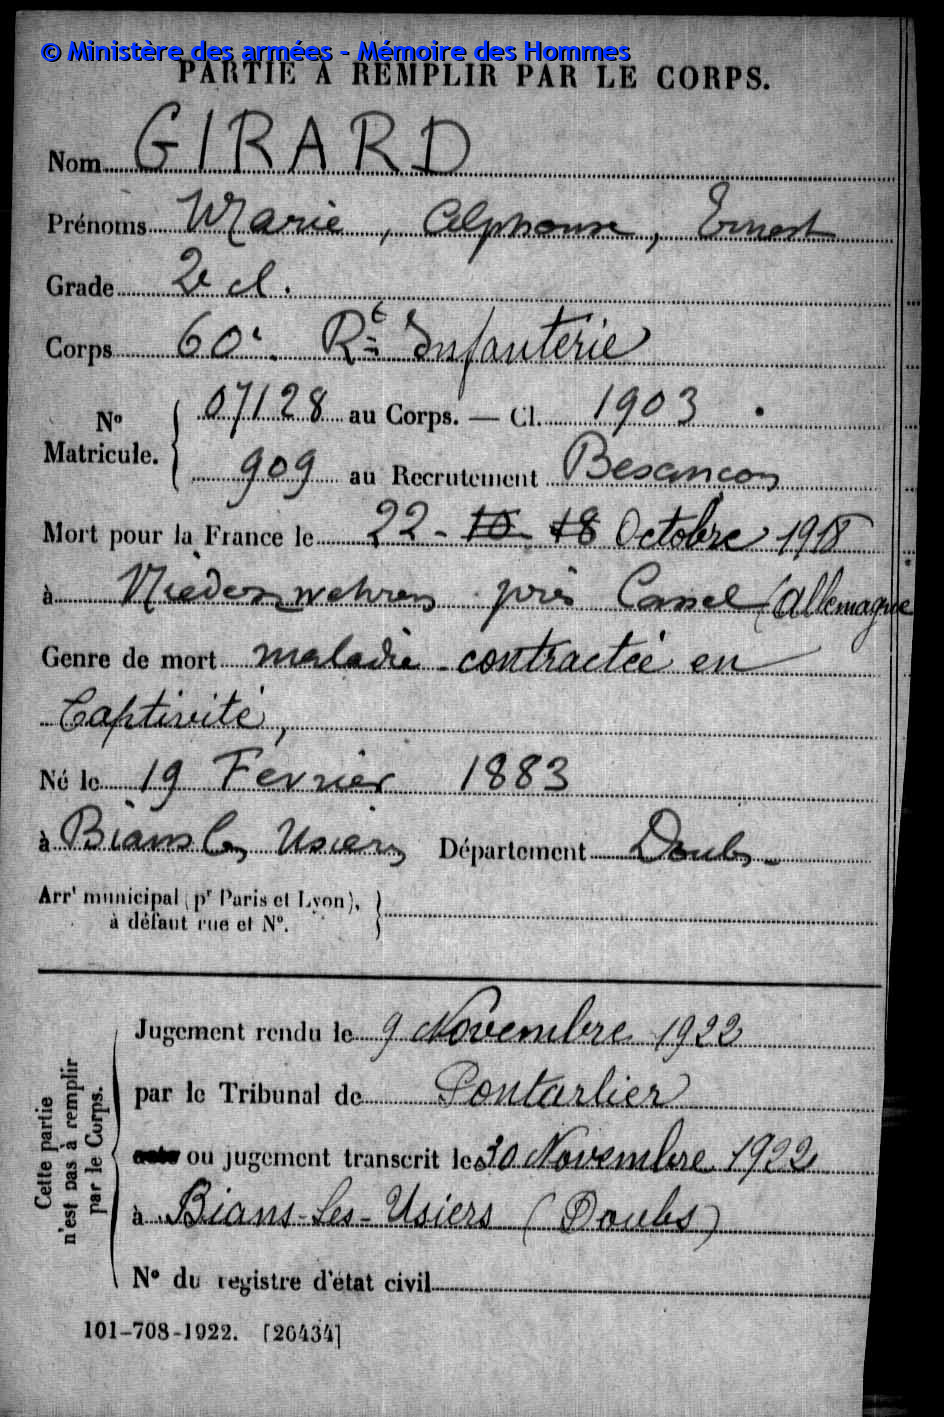 © Ministère des armées - Mémoire des Hommes
PARTIE A REMPLIR PAR LE CORPS.
Nom GIRARD
Prénoms Marie, Alphonse, Ernest
Grade 2e cl.
Corps 60e. Rt Infanterie
No Matricule. 07128 au Corps. — Cl. 1903.
909 au Recrutement Besançon
Mort pour la France le 22 - 10 - 18 Octobre 1918
à Niederzwehren près Cassel (Allemagne
Genre de mort maladie contractée en
Captivité,
Né le 19 Fevrier 1883
à Bians les Usiers Département Doubs
Arrt municipal (pr Paris et Lyon),
à défaut rue et No.
Cette partie
n'est pas à remplir
par le Corps.
Jugement rendu le 9 Novembre 1922
par le Tribunal de Pontarlier
acte ou jugement transcrit le 30 Novembre 1922
à Bians-Les-Usiers (Doubs)
No du registre d'état civil
101-708-1922. [26434]